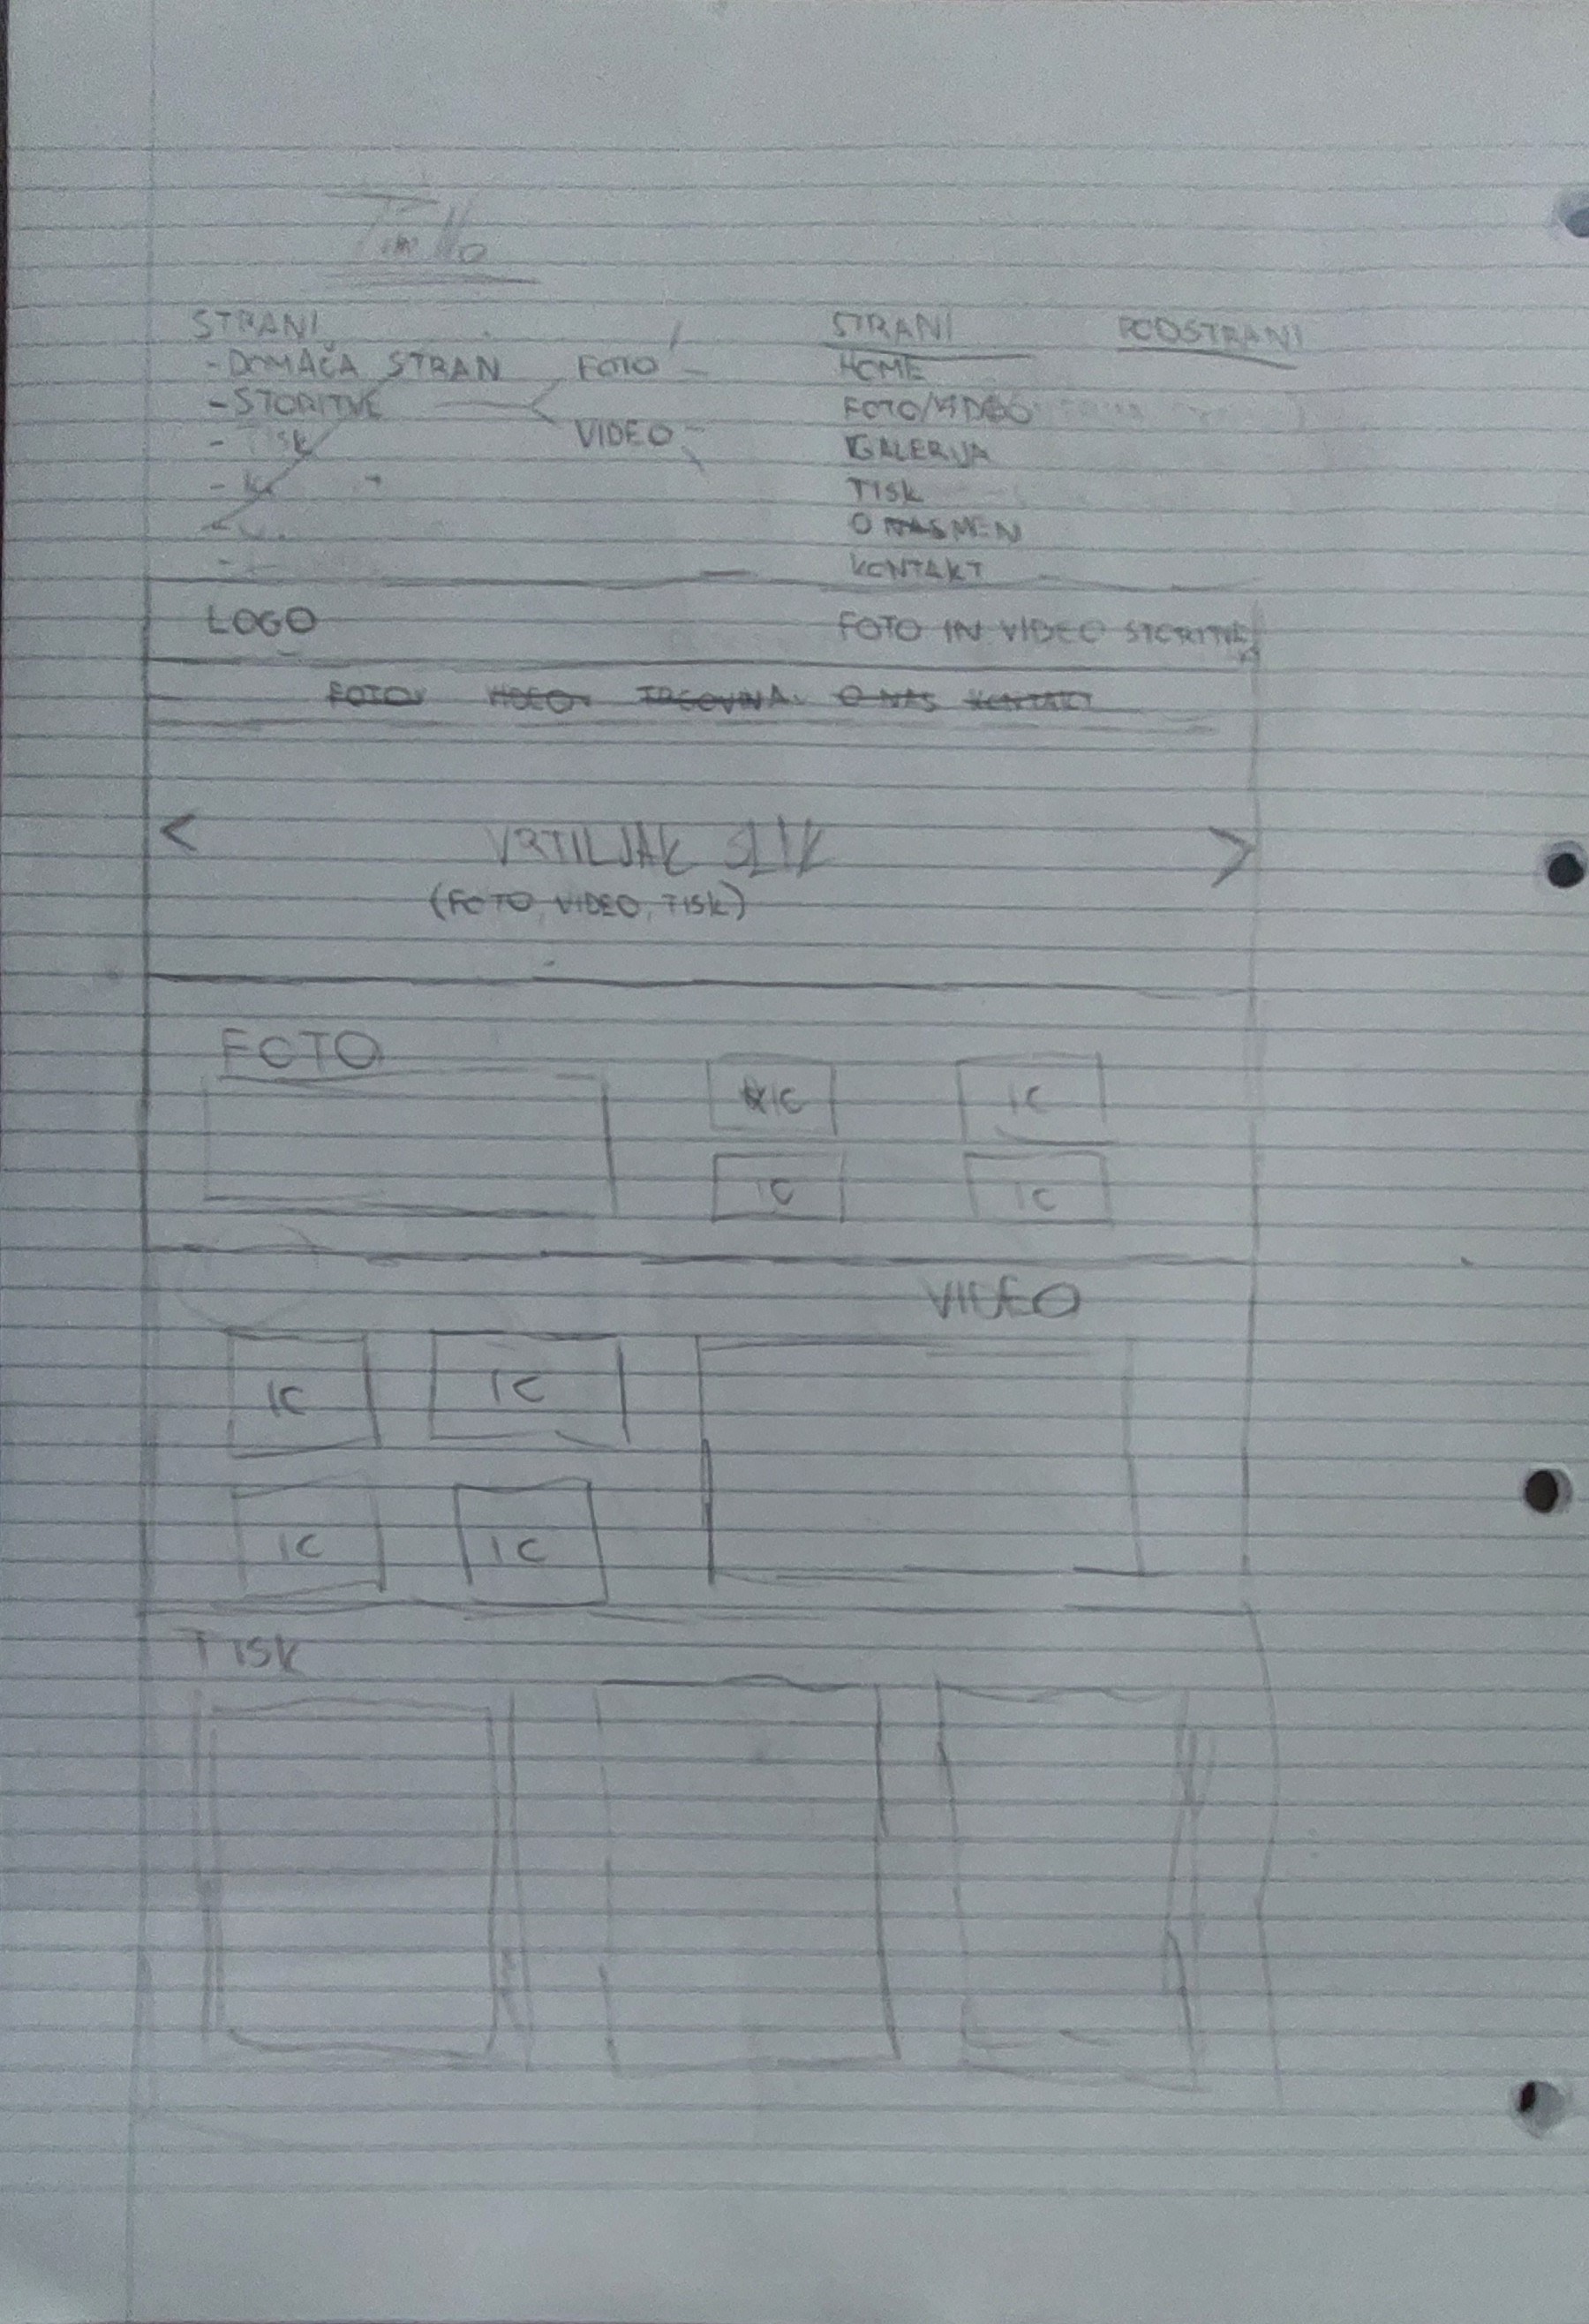 STRANI
-DOMAČA STRAN
-STORITVE
- TISK
FOTO
VIDEO
STRANI
HOME
FOTO/VIDEO
GALERIJA
TISK
O NAS MEN
KONTAKT
PODSTRANI
LOGO
FOTO IN VIDEO STORITVE
FOTO VIDEO TRGOVINA O NAS KONTAKT
< VRTILJAK SLIK >
(FOTO, VIDEO, TISK)
FOTO
IC IC
IC IC
VIDEO
IC IC
IC IC
TISK